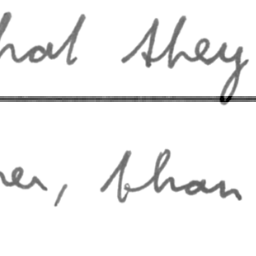 that they
her, than